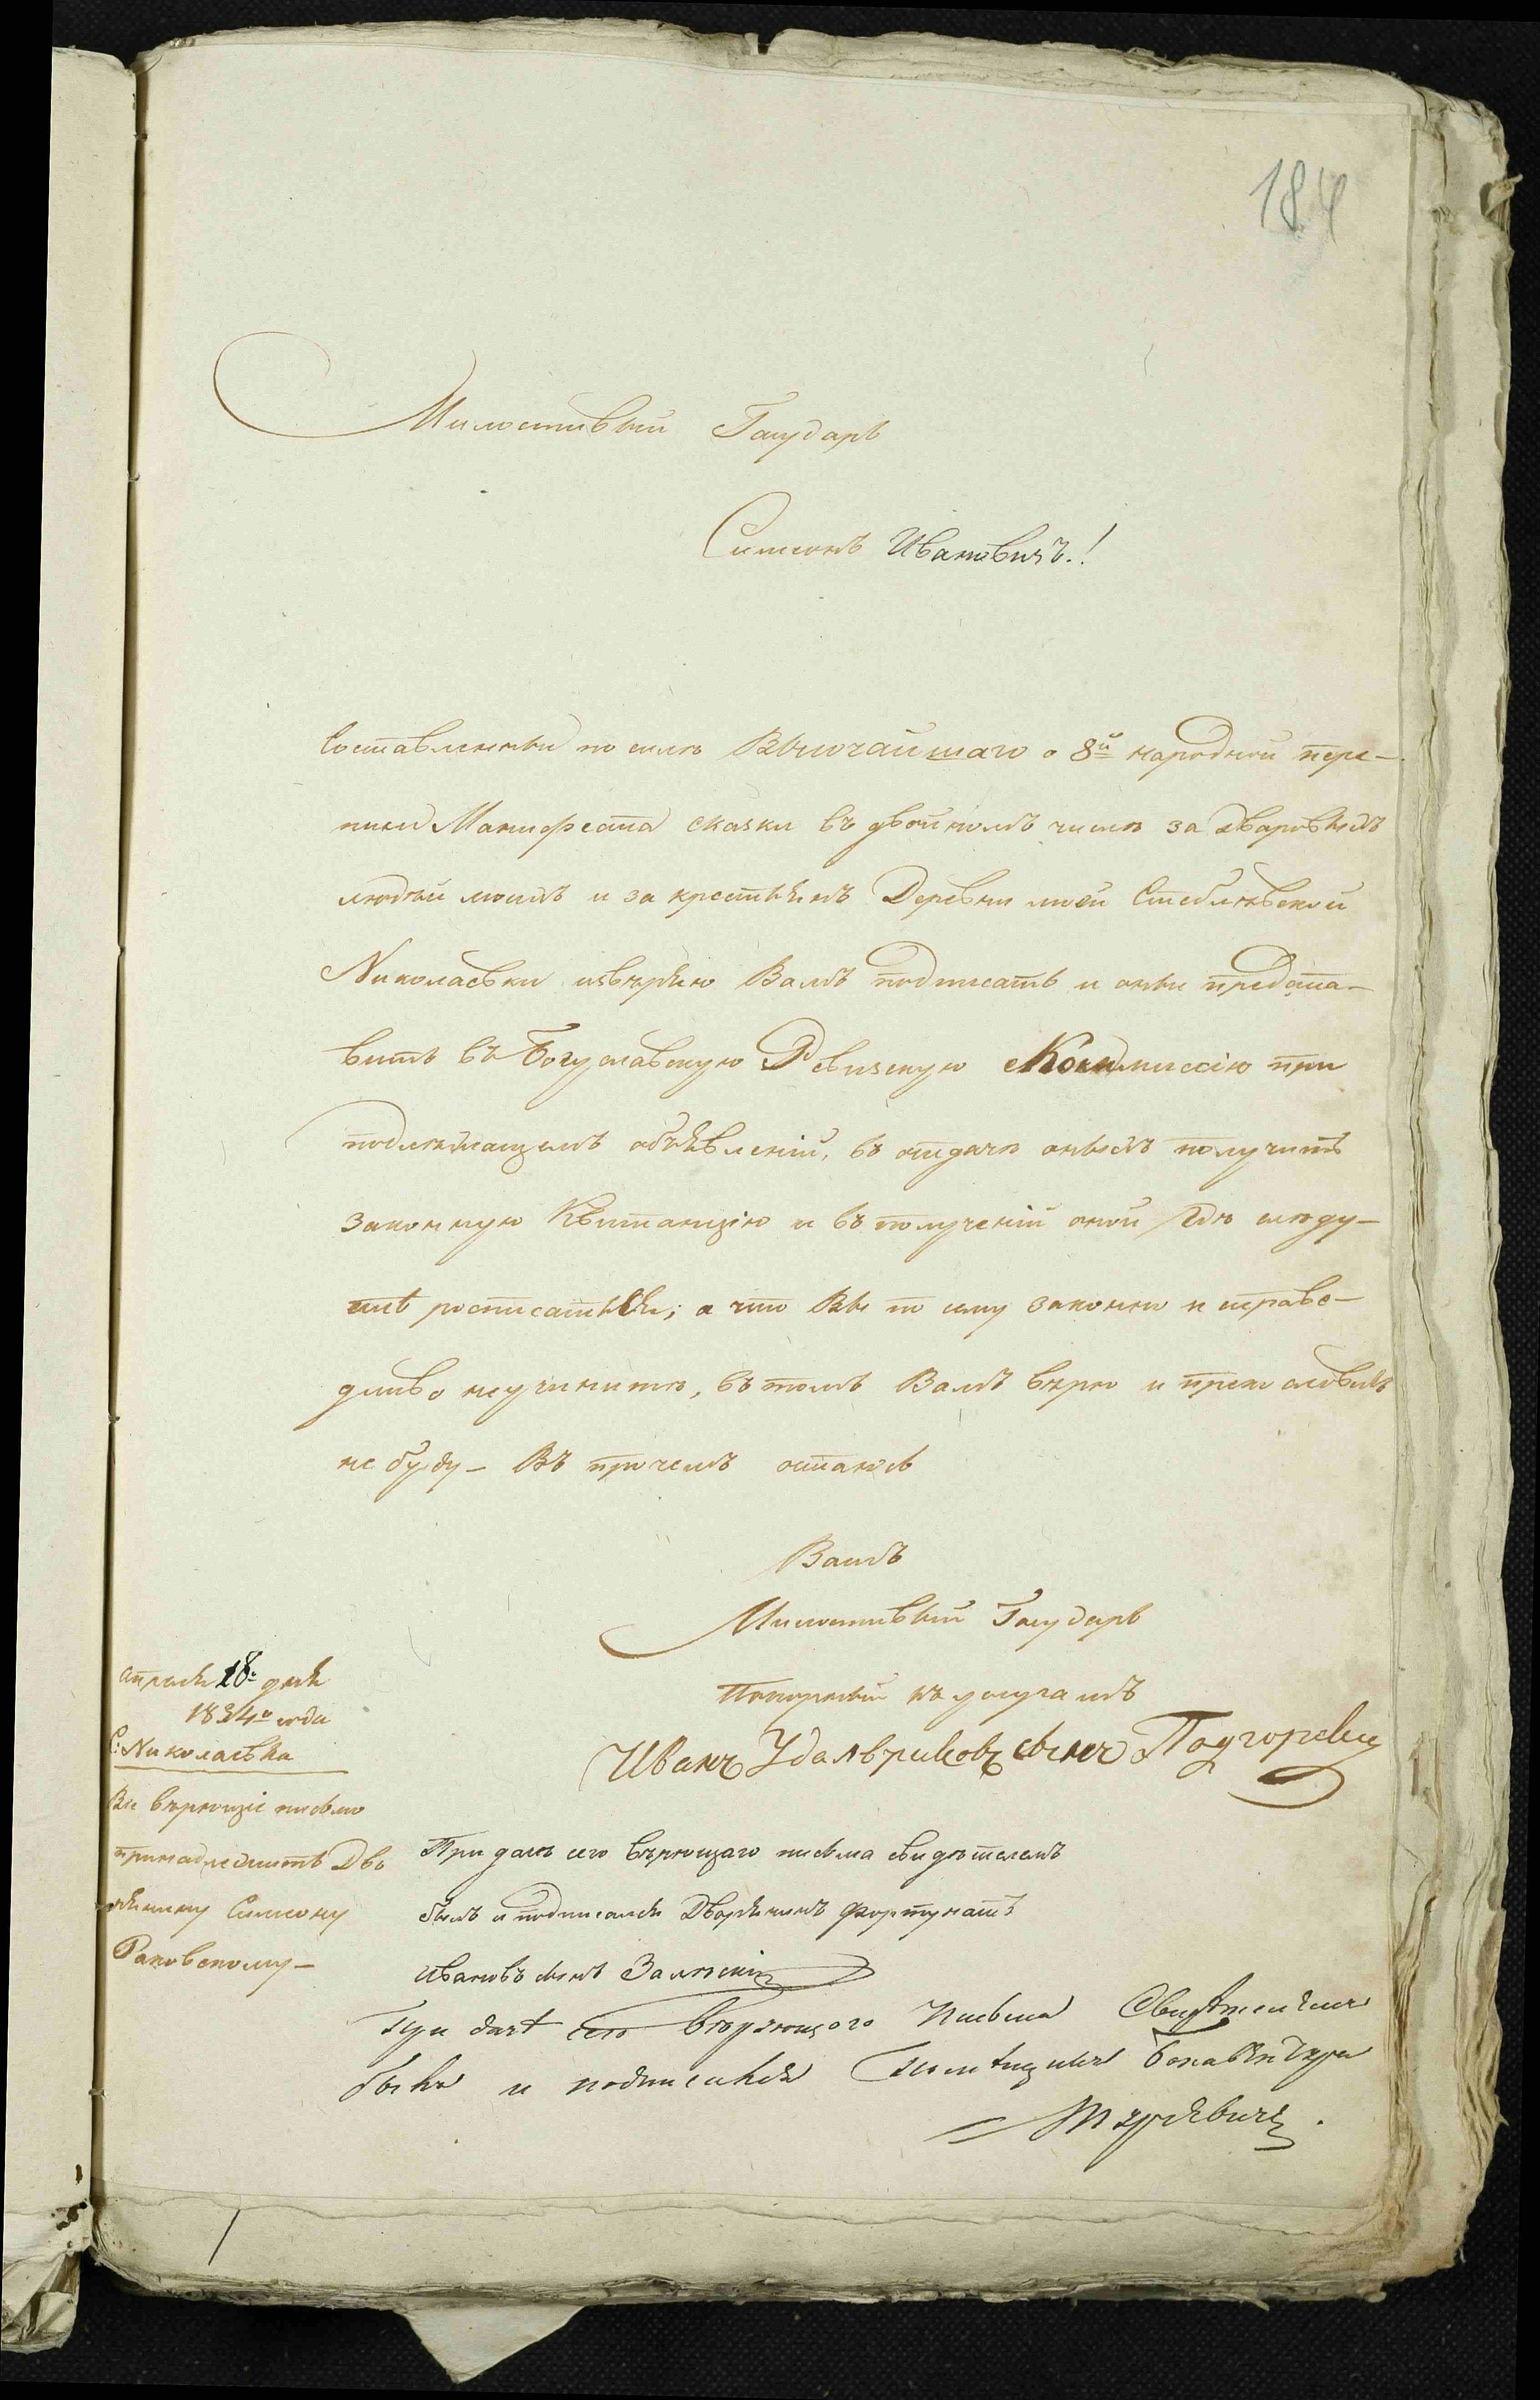 184
Милостивый Государь
Симеонъ Ивановичъ.!
Составленныи по силѣ Высочайшаго о 8й народной пере-
писи Манифеста сказки въ двойномъ числѣ за дваровыхъ
людей моихъ и за крестьянъ Деревни моей Стеблювской
Николаевки ввѣряю Вамъ подписать и оныи предста-
вить въ Богуславскую Ревизскую Коммиссію при
подлѣжащемъ объявленій, въ отдачѣ оныхъ получить
законную Квитанцію и въ полученій оной гдѣ слѣду-
итъ росписаться; а что Вы по сему законно и справе-
дливо неучинитѣ, въ томъ Вамъ вѣрю и прекословить
не буду – Въ прочемъ остаюсь
Вамъ
Милостивый Государь
Покорный къ услугамъ
Иванъ Удальриковъ сынъ Подгорскій
Апрѣля 18: дня
1834го года
С: Николаевка
Сіе вѣрющіе письмо
принадлежитъ Дво
рянину Симеону
Раковскому –
При дачѣ сего вѣрющаго письма свидѣтелемъ
былъ и подписался Дворянинъ Фортунатъ
Ивановъ сынъ Залѣскій
При дачѣ сего вѣрующого Письма Свидѣтелемъ
былъ и подписался Помѣщикъ Бонавентура